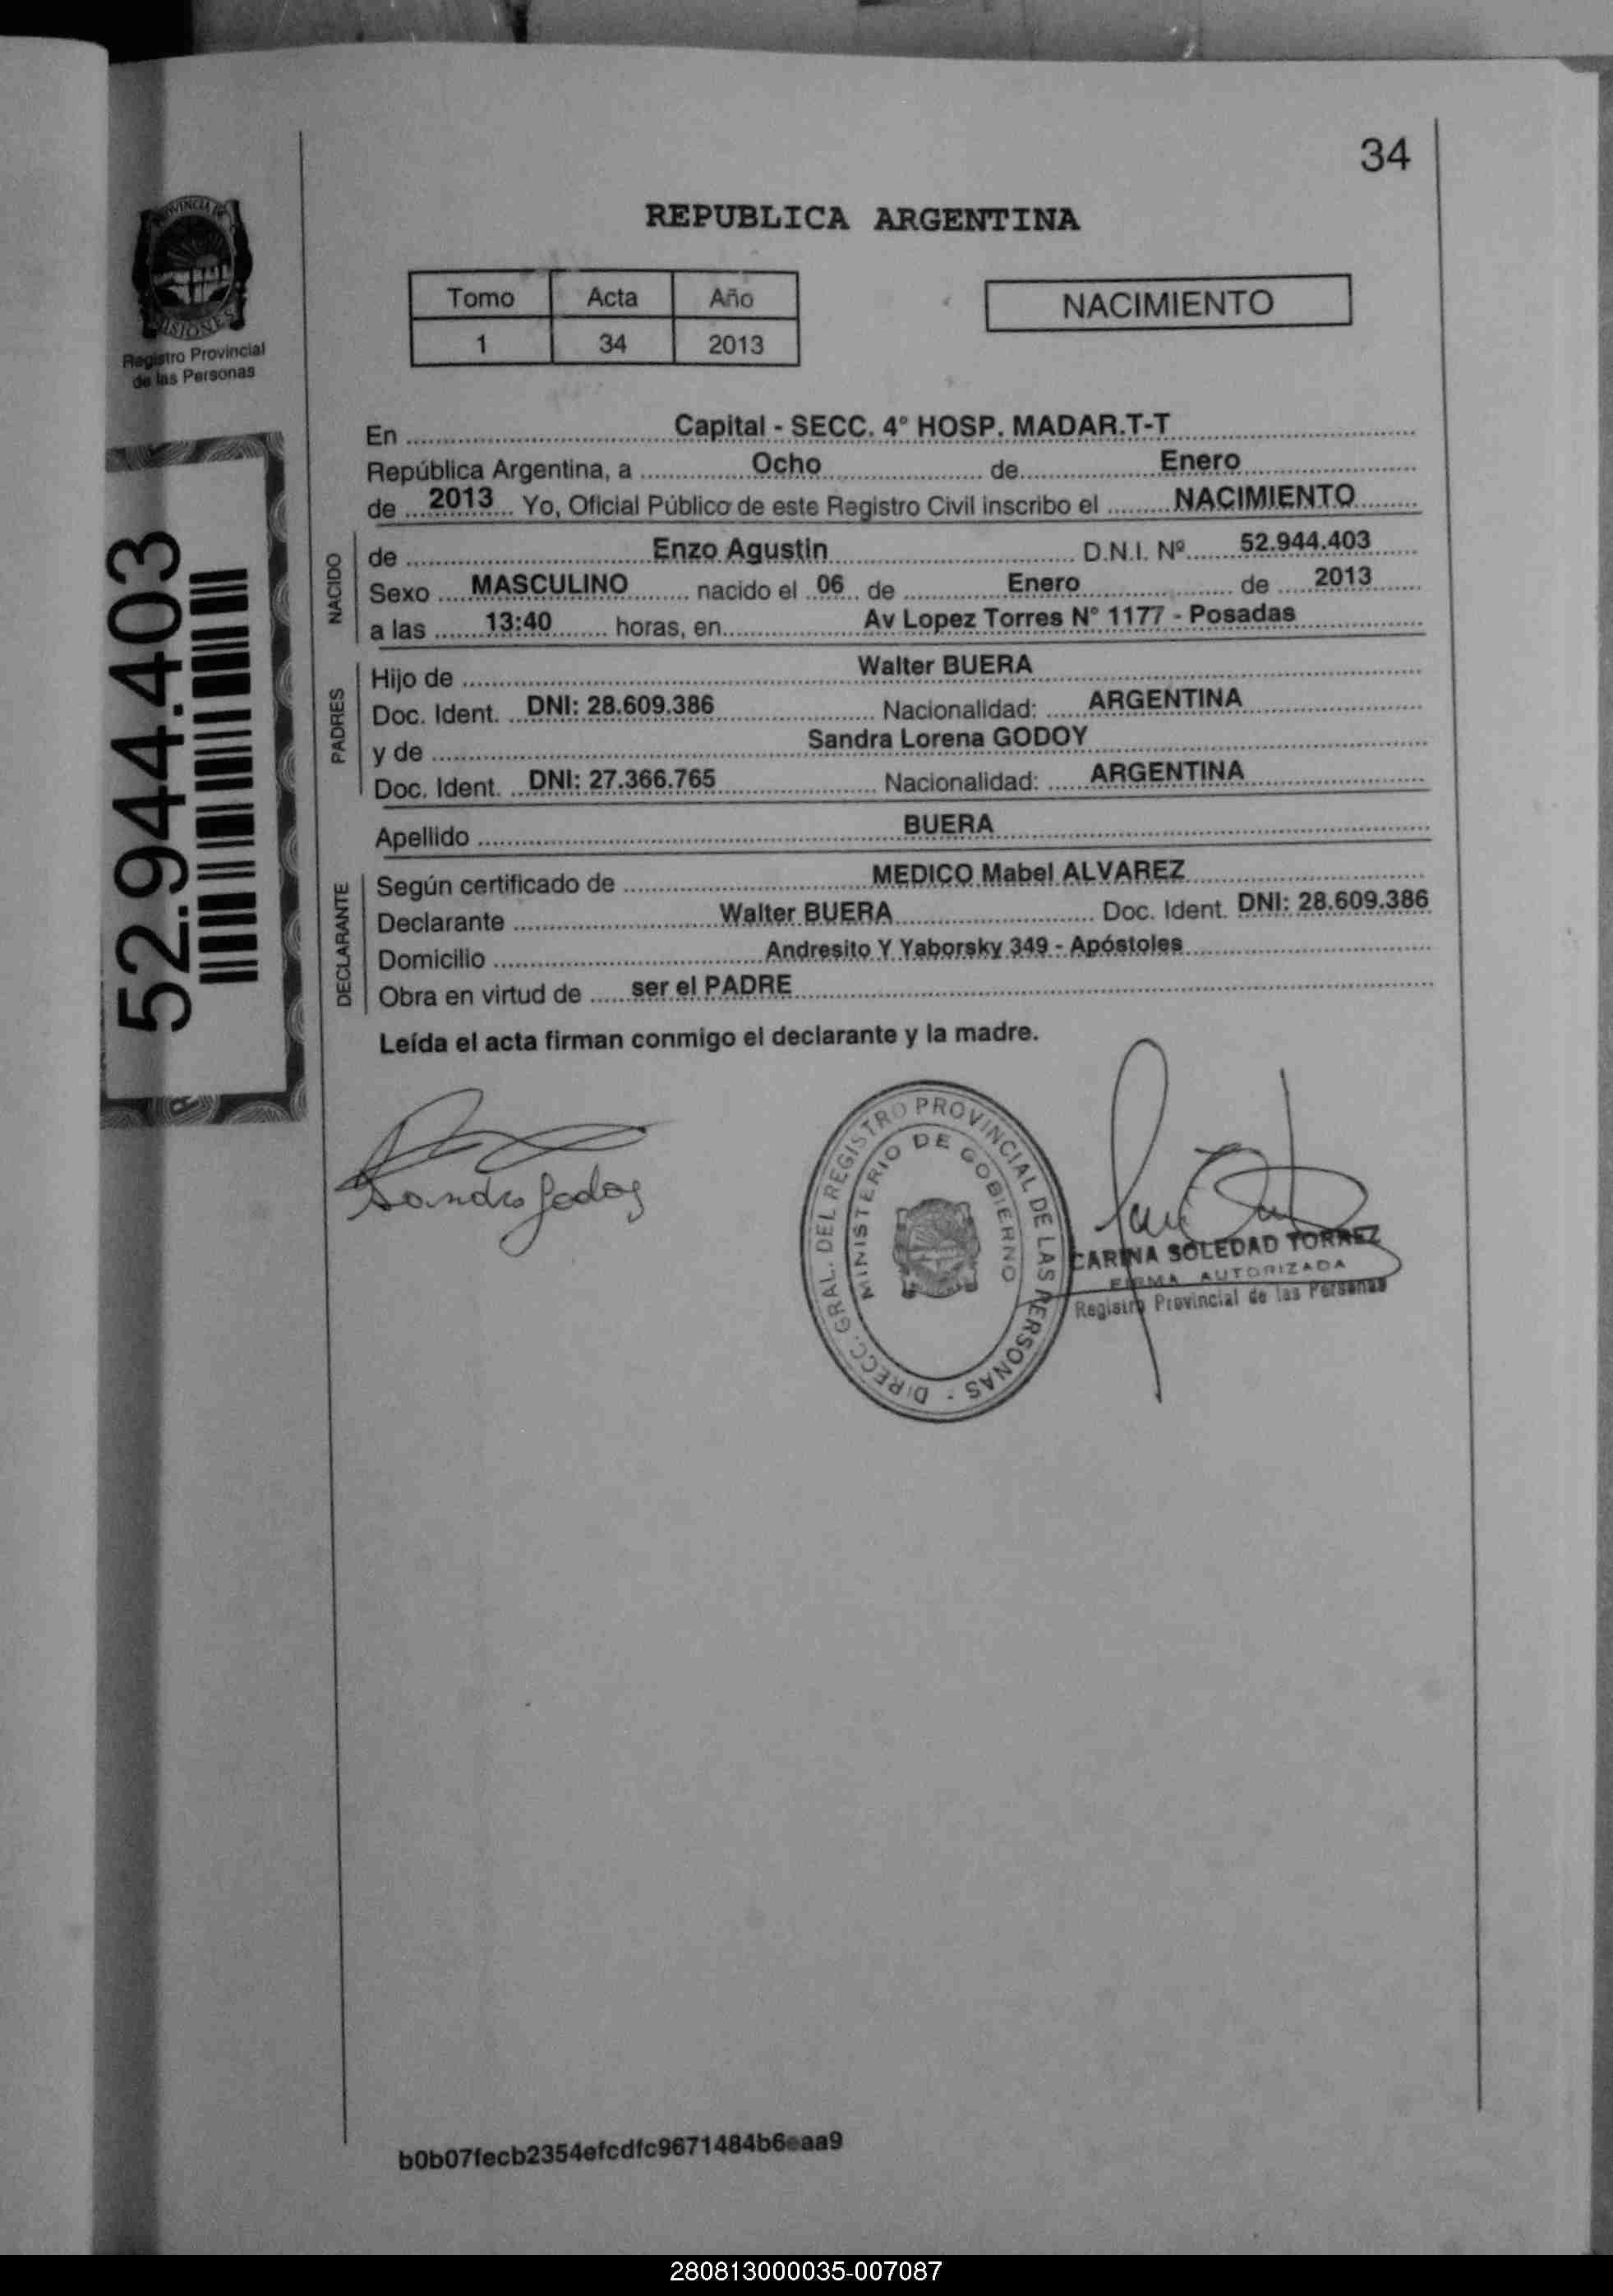 34
PROVINCIA DE
MISIONES
Registro Provincial
de las Personas
REPUBLICA ARGENTINA
Tomo Acta Año
1 34 2013
NACIMIENTO
52.944.403
En Capital - SECC. 4° HOSP. MADAR.T-T
República Argentina, a Ocho de Enero
de 2013 Yo, Oficial Público de este Registro Civil inscribo el NACIMIENTO
NACIDO
de Enzo Agustin D.N.I. Nº 52.944.403
Sexo MASCULINO nacido el 06 de Enero de 2013
a las 13:40 horas, en Av Lopez Torres N° 1177 - Posadas
PADRES
Hijo de Walter BUERA
Doc. Ident. DNI: 28.609.386 Nacionalidad: ARGENTINA
y de Sandra Lorena GODOY
Doc. Ident. DNI: 27.366.765 Nacionalidad: ARGENTINA
Apellido BUERA
DECLARANTE
Según certificado de MEDICO Mabel ALVAREZ
Declarante Walter BUERA Doc. Ident. DNI: 28.609.386
Domicilio Andresito Y Yaborsky 349 - Apóstoles
Obra en virtud de ser el PADRE
Leída el acta firman conmigo el declarante y la madre.
Sandra Godoy
DIRECC. GRAL. DEL REGISTRO PROVINCIAL DE LAS PERSONAS -
MINISTERIO DE GOBIERNO
CARINA SOLEDAD TORREZ
FIRMA AUTORIZADA
Registro Provincial de las Personas
b0b07fecb2354efcdfc9671484b6eaa9
280813000035-007087